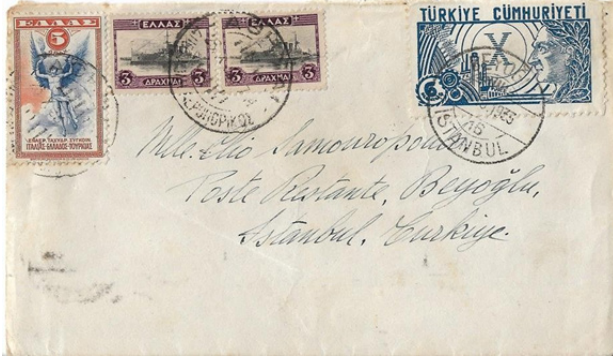 ΕΛΛΑΣ
5
ΙΤΑΛΙΑΣ-ΕΛΛΑΔΟΣ-ΤΟΥΡΚΙΑΣ
ΕΛΛΑΣ
3 ΔΡΑΧΜΑΙ 3
ΕΛΛΑΣ
3 ΔΡΑΧΜΑΙ 3
TÜRKİYE CÜMHURİYETİ
X
6
16
ISTANBUL
Mlle. Elio Samouropoulo
Poste Restante, Beyoğlu,
Istanbul. Turkiye.